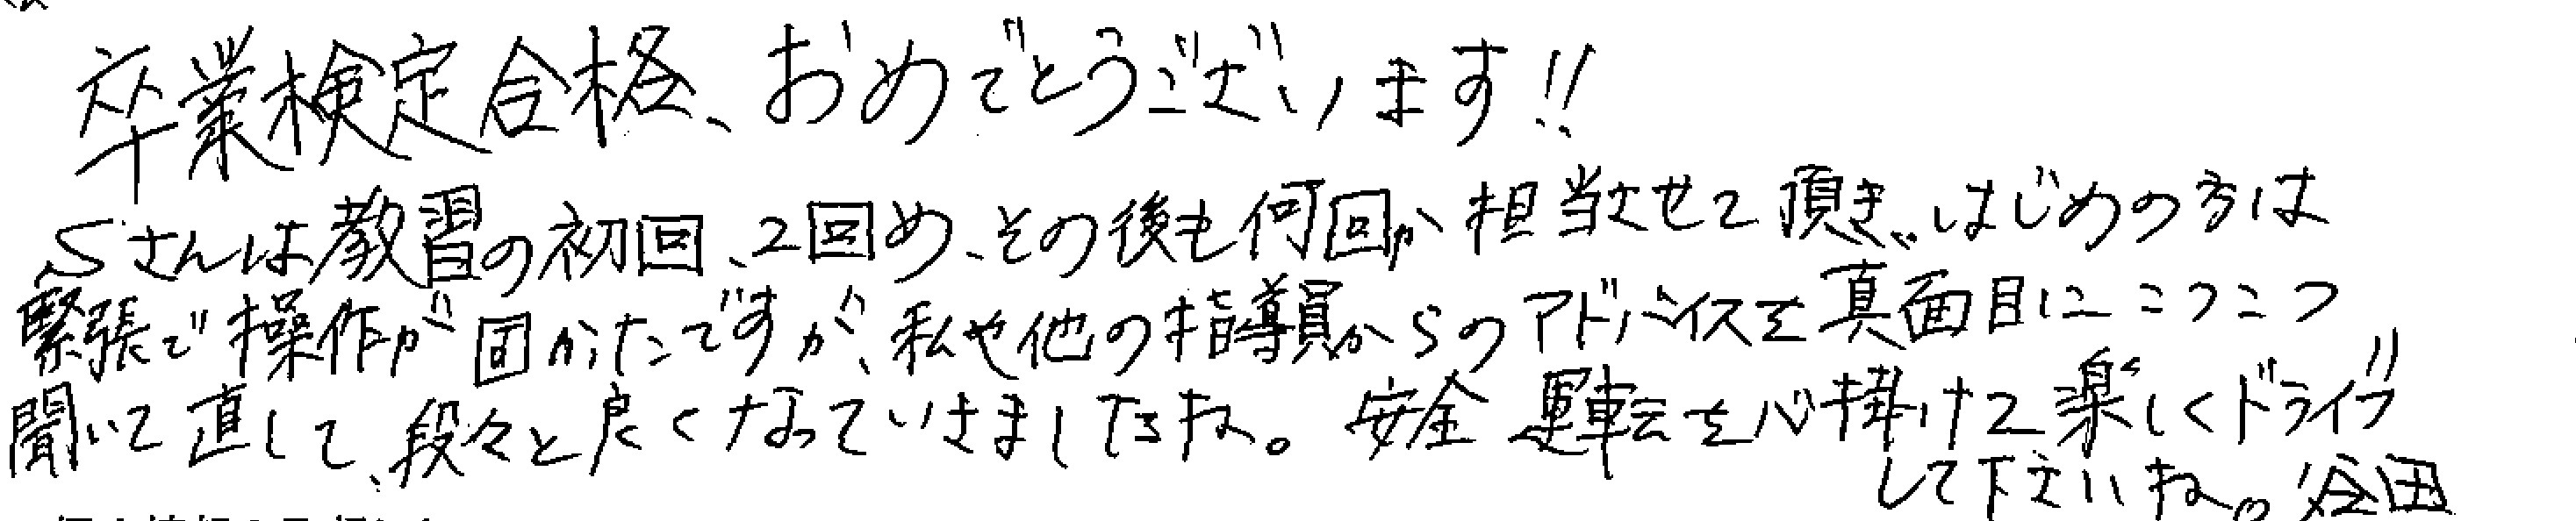 卒業検定合格、おめでとうございます!!
Sさんは教習の初回、2回め、その後も何回か担当させて頂き、はじめの方は
緊張で操作が固かたですが、私や他の指導員からのアドバイスを真面目にこつこつ
聞いて直して、段々と良くなっていきましたね。安全運転を心掛けて楽しくドライブ
して下さいね。